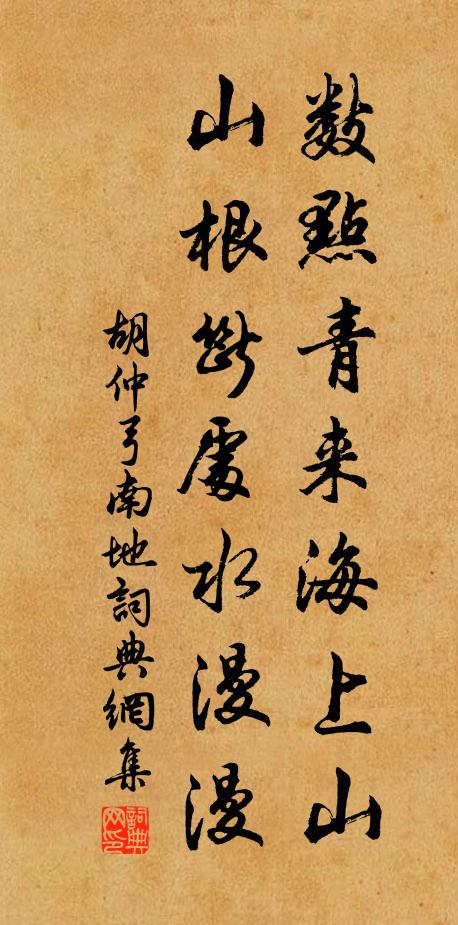 數點青来海上山
山根斷處水漫漫
胡仲弓南地詞典網集
詞典
网印